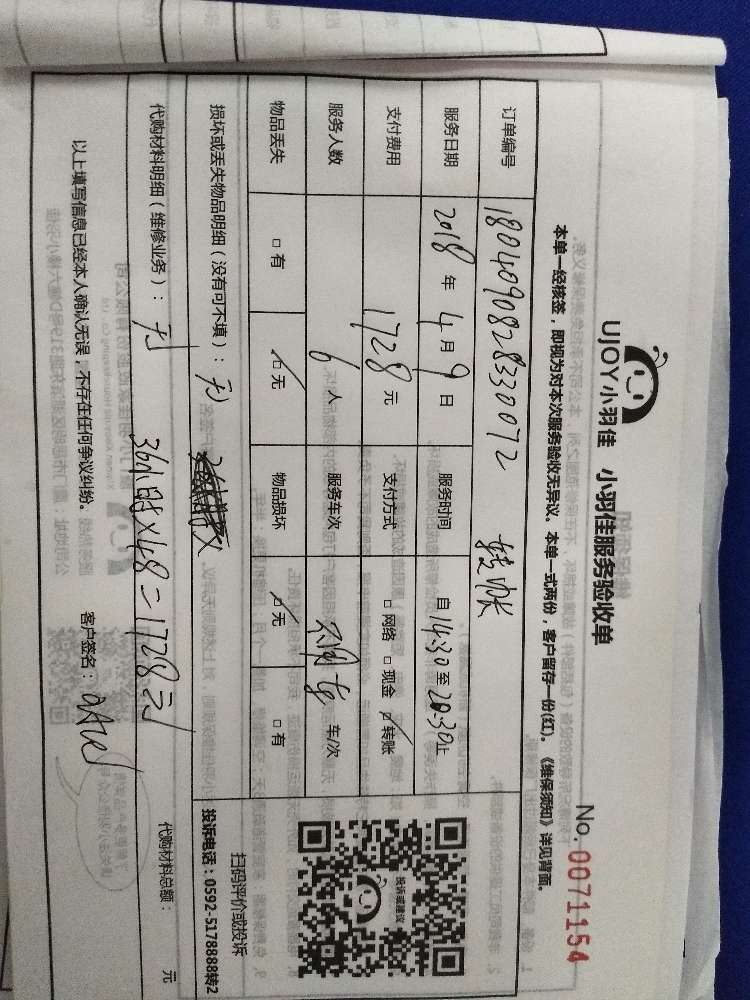 UJOY小羽佳 小羽佳服务验收单
No. 0071154
本单一经核签，即视为对本次服务验收无异议。本单一式两份，客户留存一份(红)。《维保须知》详见背面。
订单编号 1804090828330072 转账
服务日期 2018 年 4 月 9 日 服务时间 自 14:30 至 20:30 止
支付费用 1728 元 支付方式 □ 网络 □ 现金 ☑ 转账
服务人数 6 人 服务车次 车/次
物品丢失 □ 有 ☑ 无 物品损坏 ☑ 无 □ 有
损坏或丢失物品明细（没有可不填）：无
代购材料明细（维修业务）：无
36小时×48=1728元
代购材料总额： 元
以上填写信息已经本人确认无误，不存在任何争议纠纷。 客户签名：
投诉或建议
扫码评价或投诉
投诉电话：0592-5178888转2